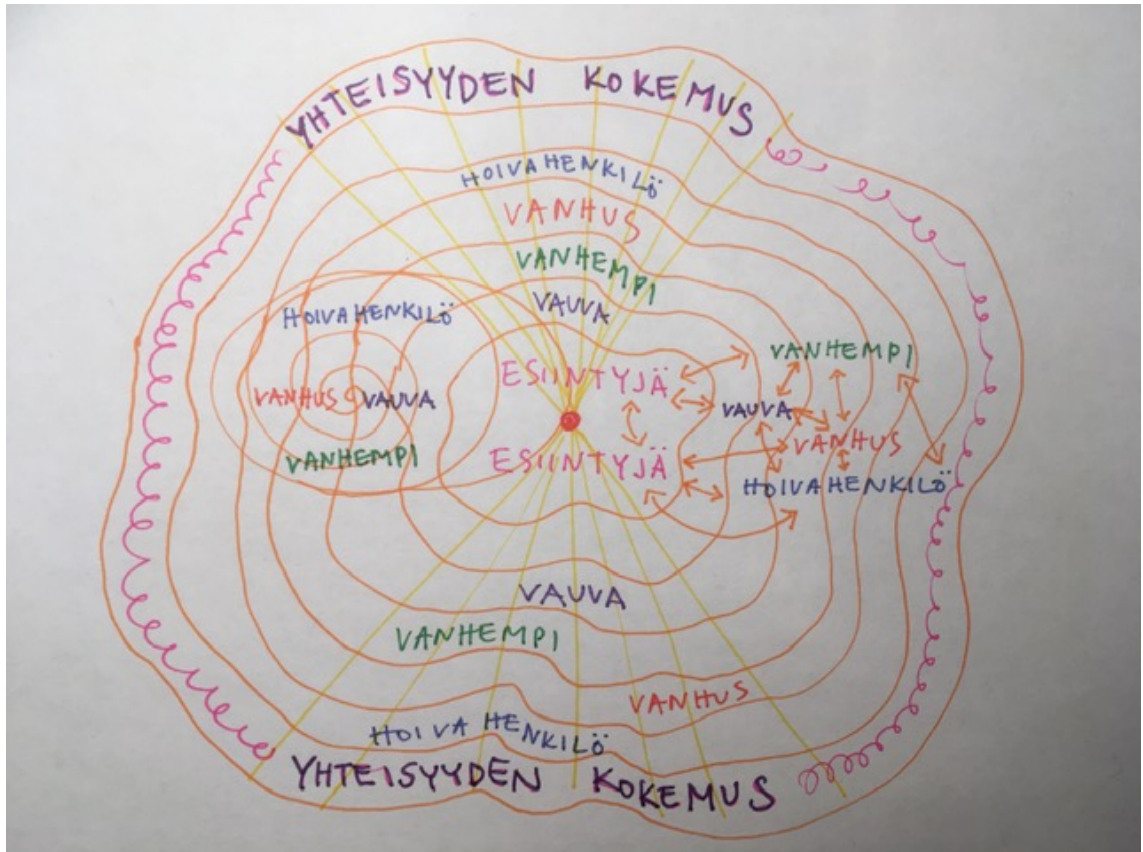 YHTEISYYDEN KOKEMUS
HOIVAHENKILÖ
VANHUS
VANHEMPI
VAUVA
HOIVAHENKILÖ
VANHUS VAUVA
VANHEMPI
ESIINTYJÄ
ESIINTYJÄ
VANHEMPI
VAUVA
VANHUS
HOIVAHENKILÖ
VAUVA
VANHEMPI
VANHUS
HOIVAHENKILÖ
YHTEISYYDEN KOKEMUS